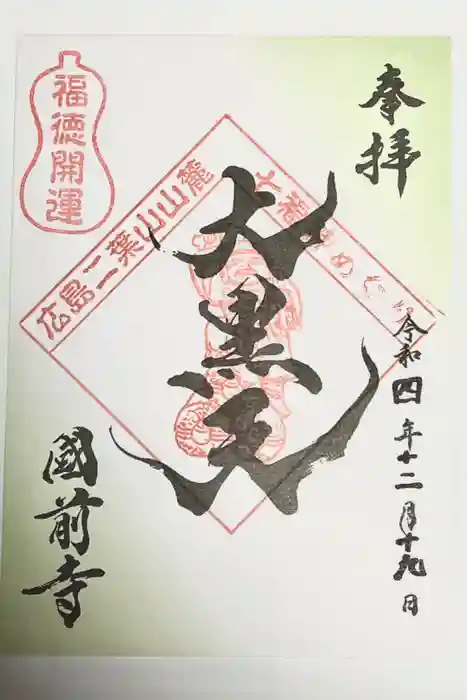 奉拝
令和四年十二月十九日
福徳開運
広島二葉山山麓
七福神めぐり
大黒天
國前寺